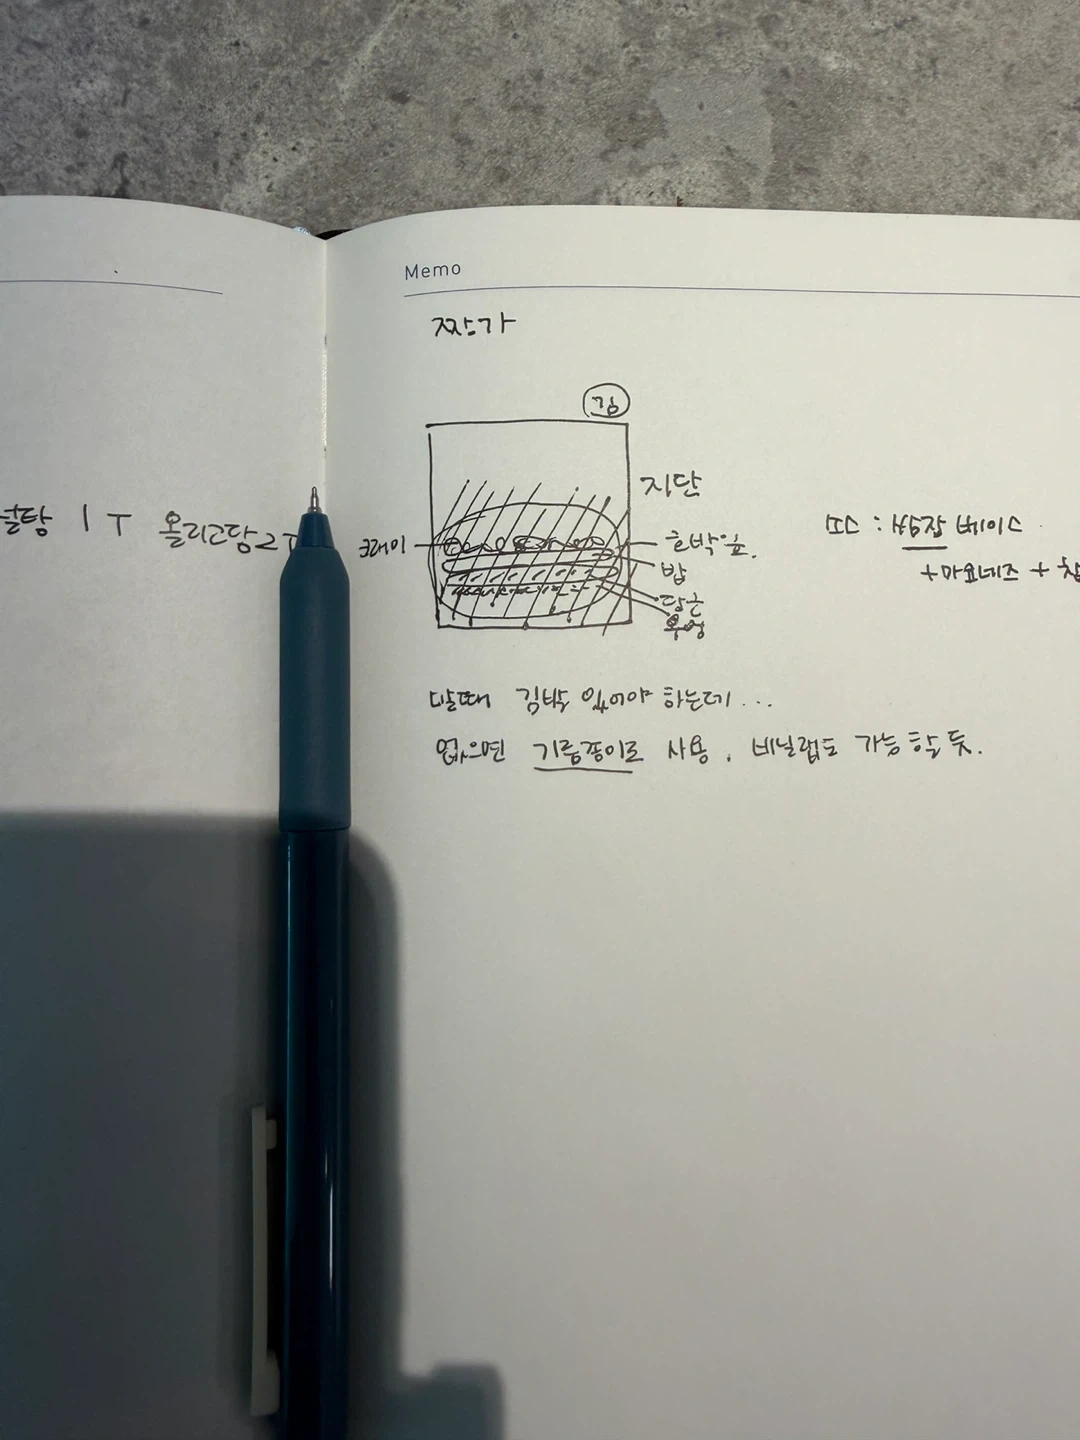 설탕 1T 올리고당 2T
Memo
짠가
김
지단
크래미
호박잎.
밥
당근
우엉
쏘스 : 쌈장 베이스
+마요네즈 +
말때 김밥 있어야 하는데...
없으면 기름종이로 사용. 비닐랩도 가능 할 듯.